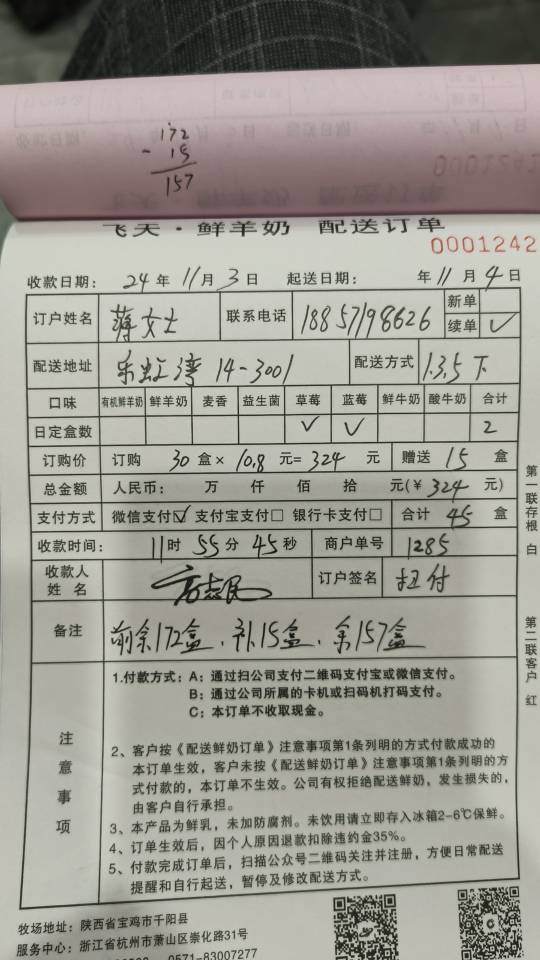 172
- 15
157
飞天·鲜羊奶 配送订单
0001242
收款日期: 24年11月3日 起送日期: 年11月4日
订户姓名 蒋女士 联系电话 18857198626 新单
续单 ✓
配送地址 乐虹湾 14-3001 配送方式 1.3.5 下
口味 有机鲜羊奶 鲜羊奶 麦香 益生菌 草莓 蓝莓 鲜牛奶 酸牛奶 合计
日定盒数 ✓ ✓ 2
订购价 订购 30 盒× 10.8 元= 324 元 赠送 15 盒
总金额 人民币: 万 仟 佰 拾 元(¥ 324 元)
支付方式 微信支付☑ 支付宝支付□ 银行卡支付□ 合计 45 盒
收款时间: 11时 55分 45秒 商户单号 1285
收款人
姓 名 订户签名 扫付
备注 前余172盒.补15盒.余157盒
第一联存根 白
第二联客户 红
注意事项
1.付款方式: A; 通过扫公司支付二维码支付宝或微信支付。
B; 通过公司所属的卡机或扫码机打码支付。
C; 本订单不收取现金。
2、客户按《配送鲜奶订单》注意事项第1条列明的方式付款成功的
本订单生效,客户未按《配送鲜奶订单》注意事项第1条列明的方
式付款的,本订单不生效。公司有权拒绝配送鲜奶,发生损失的,
由客户自行承担。
3、本产品为鲜乳,未加防腐剂。未饮用请立即存入冰箱2-6℃保鲜。
4、订单生效后,因个人原因退款扣除违约金35%。
5、付款完成订单后,扫描公众号二维码关注并注册,方便日常配送
提醒和自行起送,暂停及修改配送方式。
牧场地址: 陕西省宝鸡市千阳县
服务中心: 浙江省杭州市萧山区崇化路31号
0571-83007277